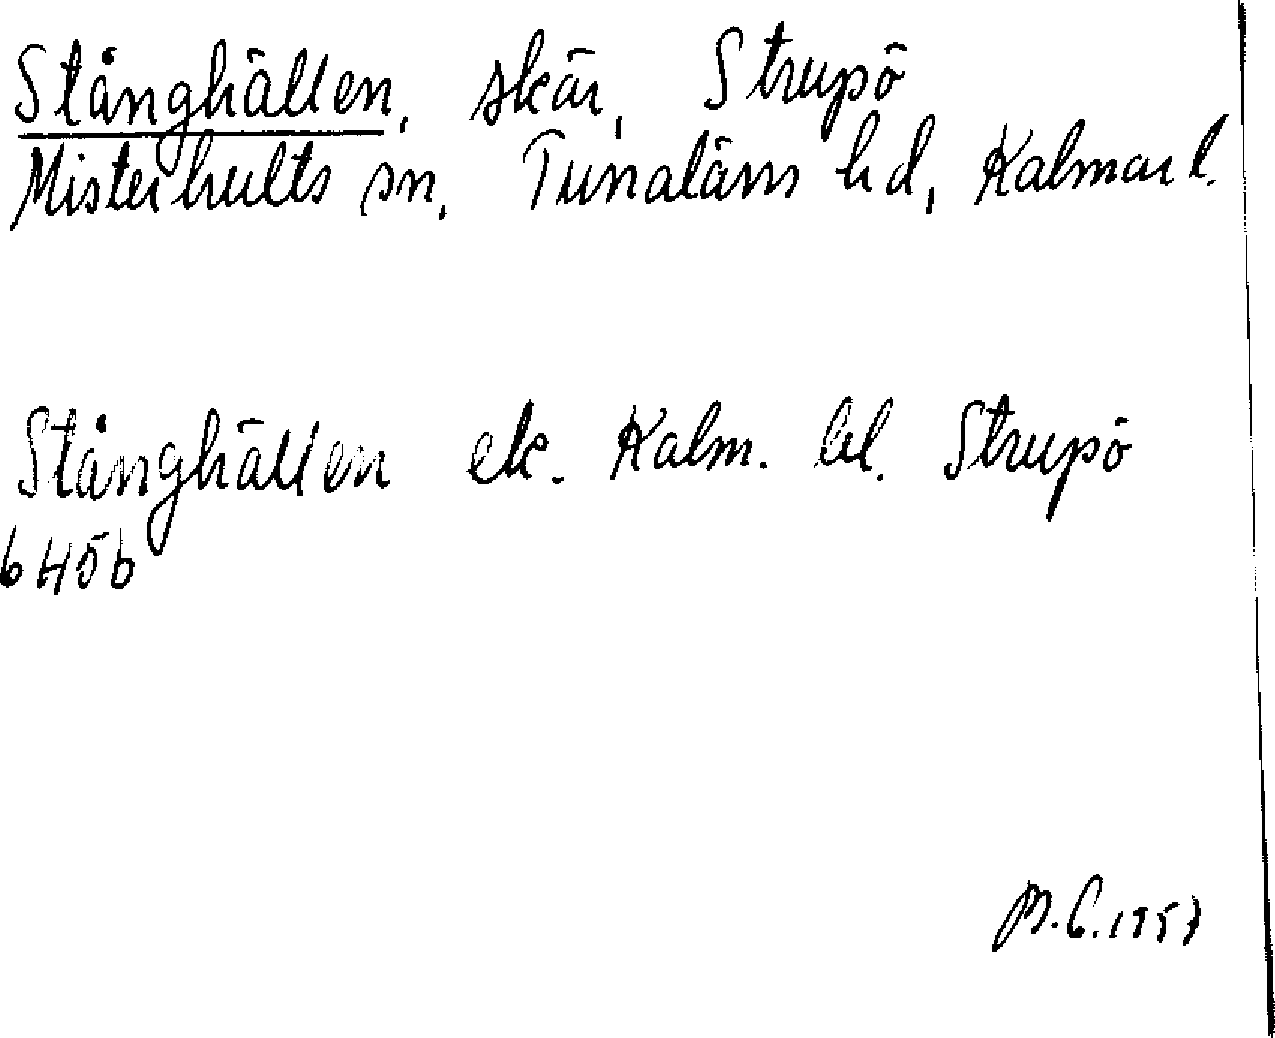 Stånghällen, skär, Strupö
Misterhults sn, Tunaläns hd, Kalmar l.
Stånghällen ek. Kalm. bl. Strupö
6H5b
M.C. 1957